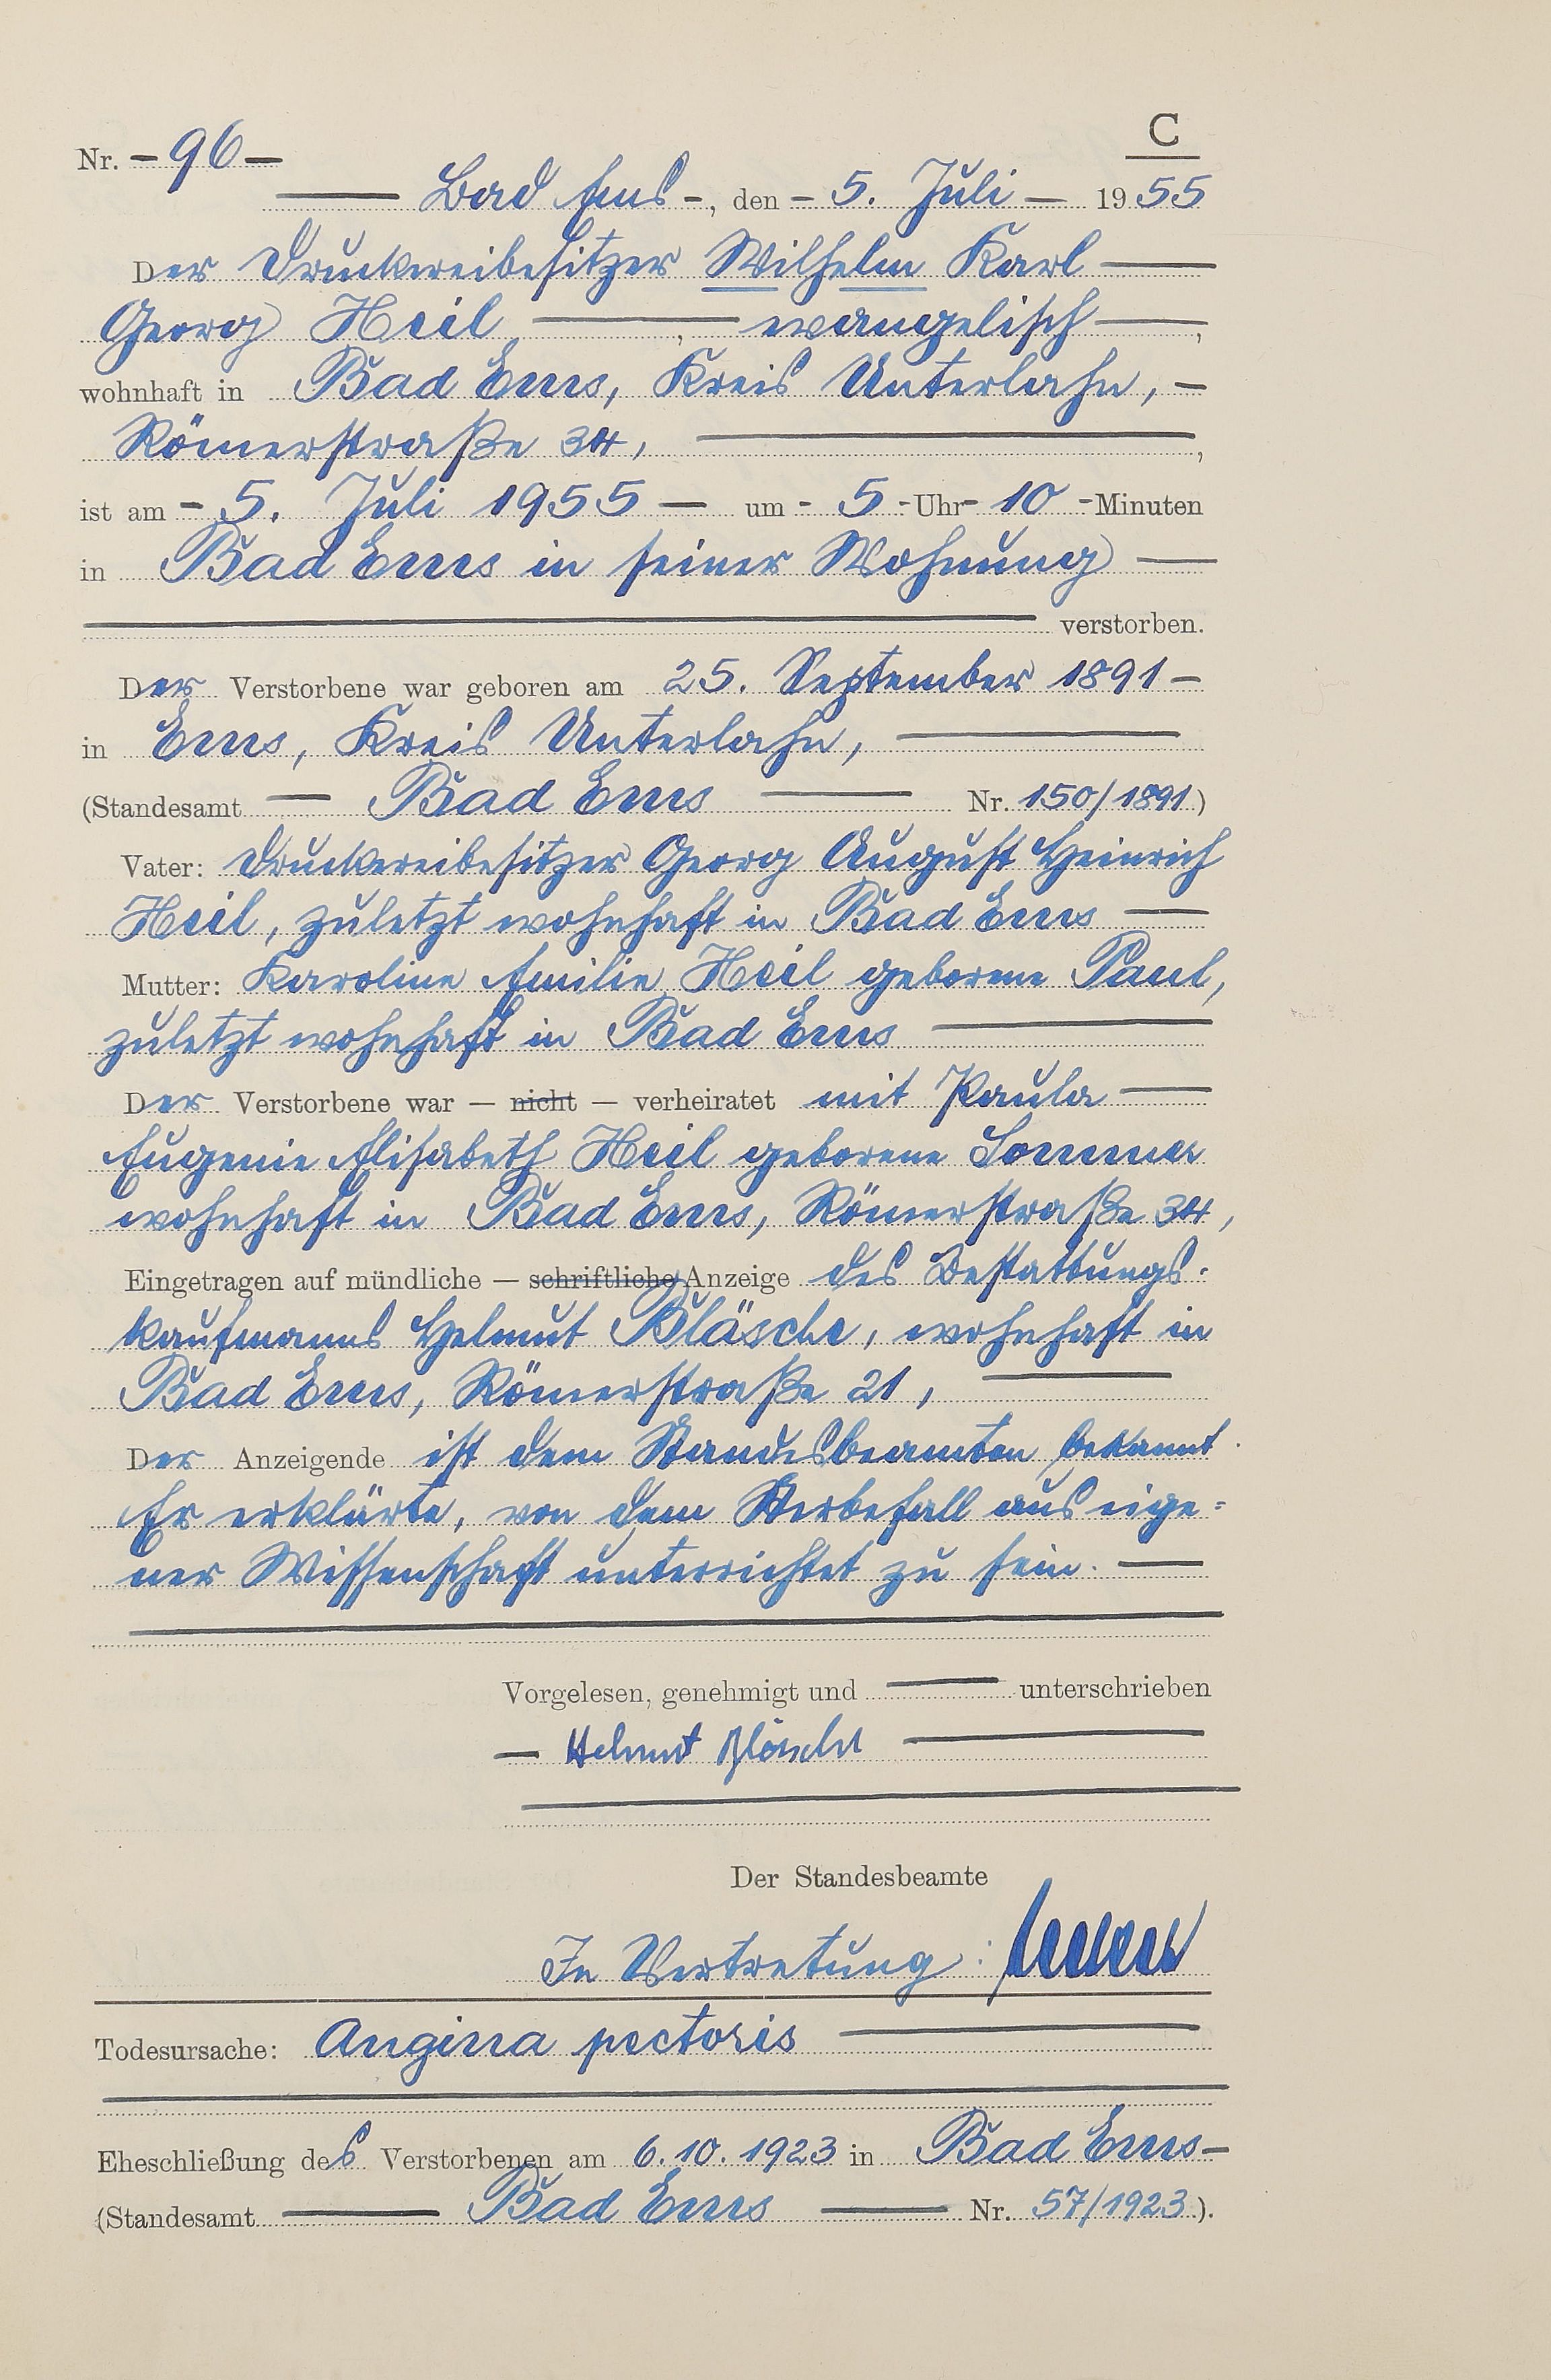 C
Nr. - 96 -
Bad Ems -, den - 5. Juli - 1955
Der Druckereibesitzer Wilhelm Karl
Georg Heil, evangelisch,
wohnhaft in Bad Ems, Kreis Unterlahn, -
Römerstraße 34,
ist am - 5. Juli 1955 - um - 5 - Uhr - 10 - Minuten
in Bad Ems in seiner Wohnung
verstorben.
Der Verstorbene war geboren am 25. September 1891 -
in Ems, Kreis Unterlahn,
(Standesamt - Bad Ems Nr. 150/1891)
Vater: Druckereibesitzer Georg August Heinrich
Heil, zuletzt wohnhaft in Bad Ems
Mutter: Karoline Emilie Heil geborene Paul,
zuletzt wohnhaft in Bad Ems
Der Verstorbene war — nicht — verheiratet mit Paula
Eugenie Elisabeth Heil geborene Sommer
wohnhaft in Bad Ems, Römerstraße 34,
Eingetragen auf mündliche — schriftliche Anzeige des Bestattungs-
kaufmanns Helmut Bläsche, wohnhaft in
Bad Ems, Römerstraße 21,
Der Anzeigende ist dem Standesbeamten bekannt.
Er erklärte, von dem Sterbefall aus eige=
ner Wissenschaft unterrichtet zu sein.
Vorgelesen, genehmigt und unterschrieben
Helmut Bläsche
Der Standesbeamte
In Vertretung:
Todesursache: Angina pectoris
Eheschließung des Verstorbenen am 6.10.1923 in Bad Ems -
(Standesamt Bad Ems Nr. 57/1923).